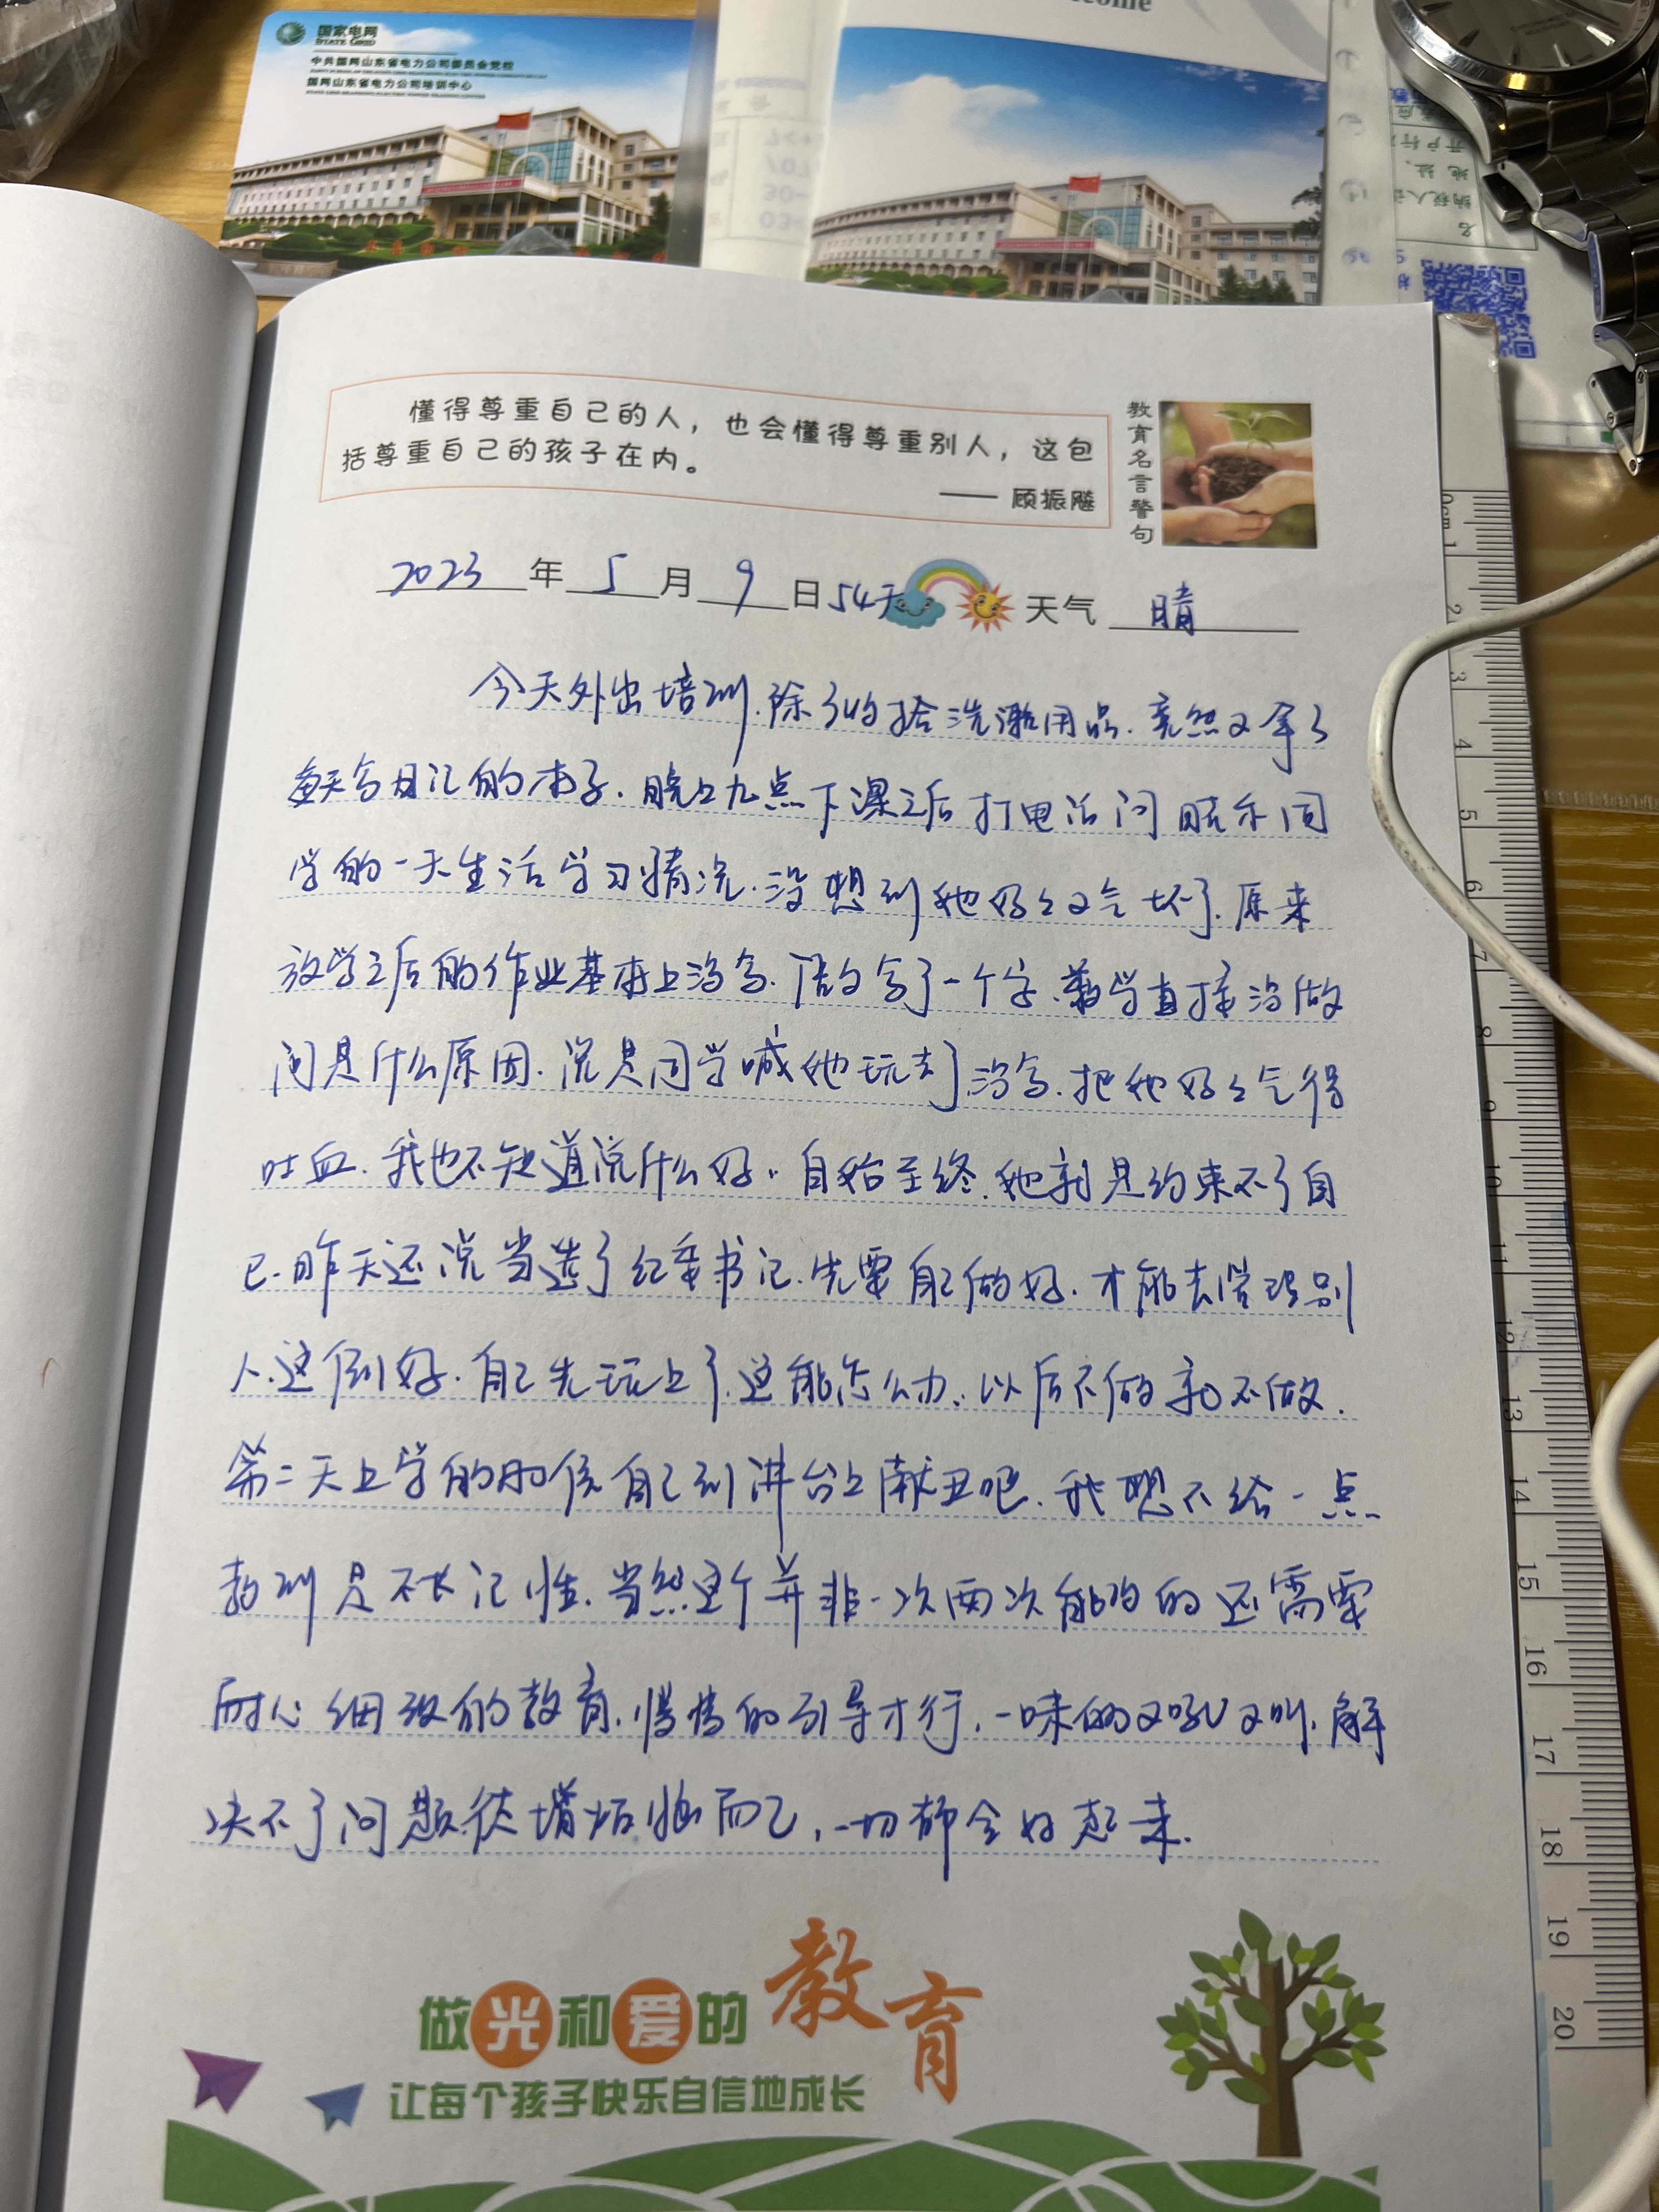 国家电网
STATE GRID
中共国网山东省电力公司委员会党校
国网山东省电力公司培训中心
懂得尊重自己的人，也会懂得尊重别人，这包
括尊重自己的孩子在内。
—— 顾振飚
教育名言警句
2023年5月9日54天 天气 晴
今天外出培训.除了收拾洗漱用品.竟然又拿了
每天写日记的本子.晚上九点下课之后打电话问晓乐同
学的一天生活学习情况.没想到他妈妈又气坏了.原来
放学之后的作业基本上没写.语文写了一个字、数学直接没做
问是什么原因.说是同学喊他玩去了没写.把他妈妈气得
吐血.我也不知道说什么好.自始至终.他就是约束不了自
己.昨天还说当选了纪委书记.先要自己做好.才能去管理别
人.这倒好.自己先玩上了.这能怎么办.以后不做就不做.
第二天上学的时候自己到讲台上献丑吧.我想不给一点
教训是不长记性.当然这个并非一次两次能改的还需要
耐心细致的教育.慢慢的引导才行.一味的又吼又叫.解
决不了问题.徒增烦恼而已,一切都会好起来.
做光和爱的教育
让每个孩子快乐自信地成长
0cm 1
2
3
4
5
6
7
8
9
10
11
12
13
14
15
16
17
18
19
20